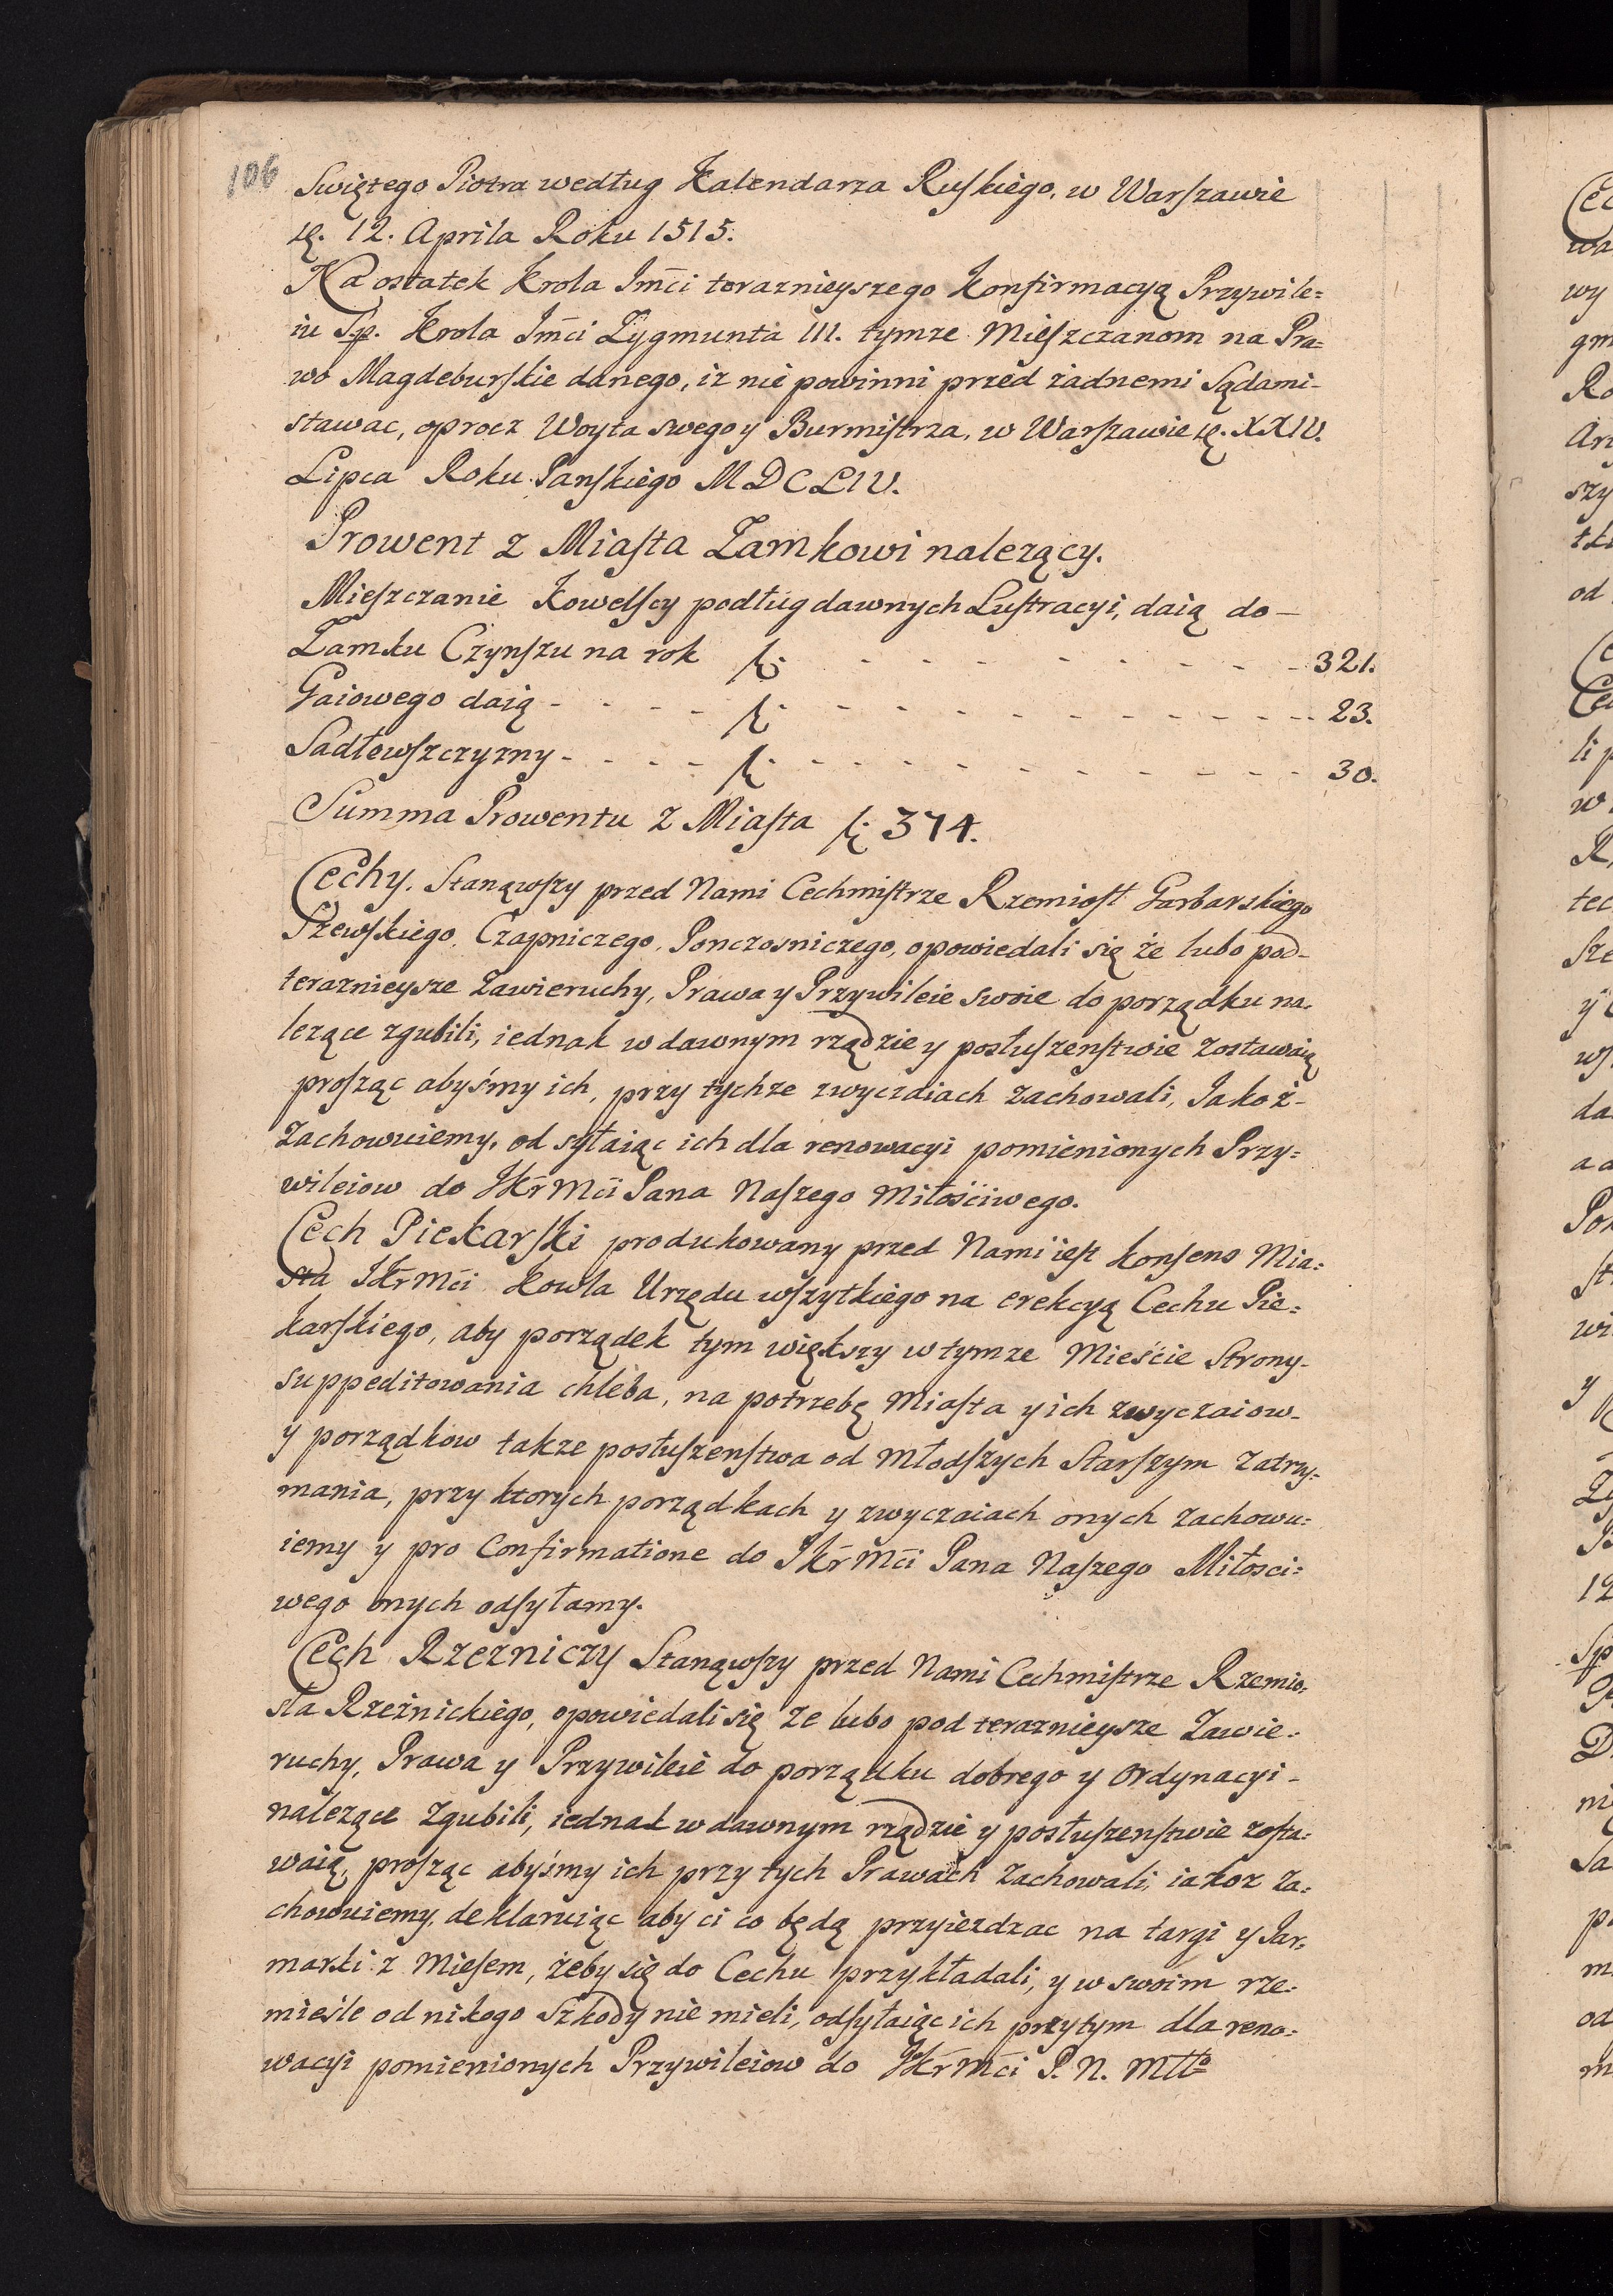 106
Swiętego Piotra według Kalendarza Ruſkiego, w Warſzawie
12. Aprila Roku 1515.
Na ostatek Krola Jm̃ci terazniejszego Konfirmacyą Przywile=
iu Sp. Krola Jm̃ci Zygmunta III. tymze Mieſzczanom na Pra=
wo Magdeburſkie danego, iz nie powinni przed zadnemi Sądami-
stawac, oprocz Woyta swego y Burmiſtrza, w Warſzawie XXIV.
Lipca Roku Panſkiego MDCLIV.
Prowent z Miaſta Zamkowi nalezący.
Mieſzczanie Kowelſcy podług dawnych Luſtracyi, daią do-
Zamku Czynſzu na rok fl: - - - - - - - - - 321.
Gaiowego daią - - - - fl: - - - - - - - - - - - 23.
Sadłowſzczyzny - - - - fl: - - - - - - - - - - 30.
Summa Prowentu z Miaſta fl: 374.
Cechy. Stanąwſzy przed Nami Cechmiſtrze Rzemioſł Garbarskiego
Szewſkiego, Czapniczego, Ponczosniczego, opowiedali się że lubo pod-
teraznieysze Zawieruchy, Prawa y Przywileie swoie do porządku na-
lezące zgubili, iednak w dawnym rządzie y posłuſzenſtwie zostawaią
proſząc abyśmy ich, przy tychze zwyczaiach zachowali, Jakoż-
Zachowuiemy, od syłaiąc ich dla renowacyi pomienionych Przy=
wileiow do JKr̃Mći Pana Naſzego Miłośćiwego.
Cech Piekarſki produkowany przed Nami ieſt konſens Mia=
sta JKr̃Mći Kowla Urzędu wſzytkiego na erekcyą Cechu Pie=
karſkiego, aby porządek tym większy w tymze Mieście Strony-
suppeditowania chleba, na potrzebę Miaſta y ich zwyczaiow-
y porządkow takze posłuſzenſtwa od Młodſzych Starſzym zatrzy=
mania, przy ktorych porządkach y zwyczaiach onych zachowu=
iemy y pro Confirmatione do JKr̃Mći Pana Naſzego Miłosci=
wego onych odſyłamy.
Cech Rzezniczy Stanąwſzy przed Nami Cechmiſtrze Rzemio=
sła Rzeźnickiego, opowiedali się ze lubo pod teraznieysze Zawie=
ruchy, Prawa y Przywileie do porządku dobrego y Ordynacyi-
nalezące Zgubili, iednak w dawnym rządzie y posłuſzenſtwie zoſta=
waią, proſząc abyśmy ich przy tych Prawach zachowali, iakoz za=
chowuiemy, deklaruiąc aby ci co będą przyiezdzac na targi y Jar=
marki z Mieſem, żeby się do Cechu przykładali, y w swoim rze=
mieśle od nikogo Szkody nie mieli, odſyłaiąc ich przytym dla reno=
wacyi pomienionych Przywileiow do JKr̃Mći P. N. Młł